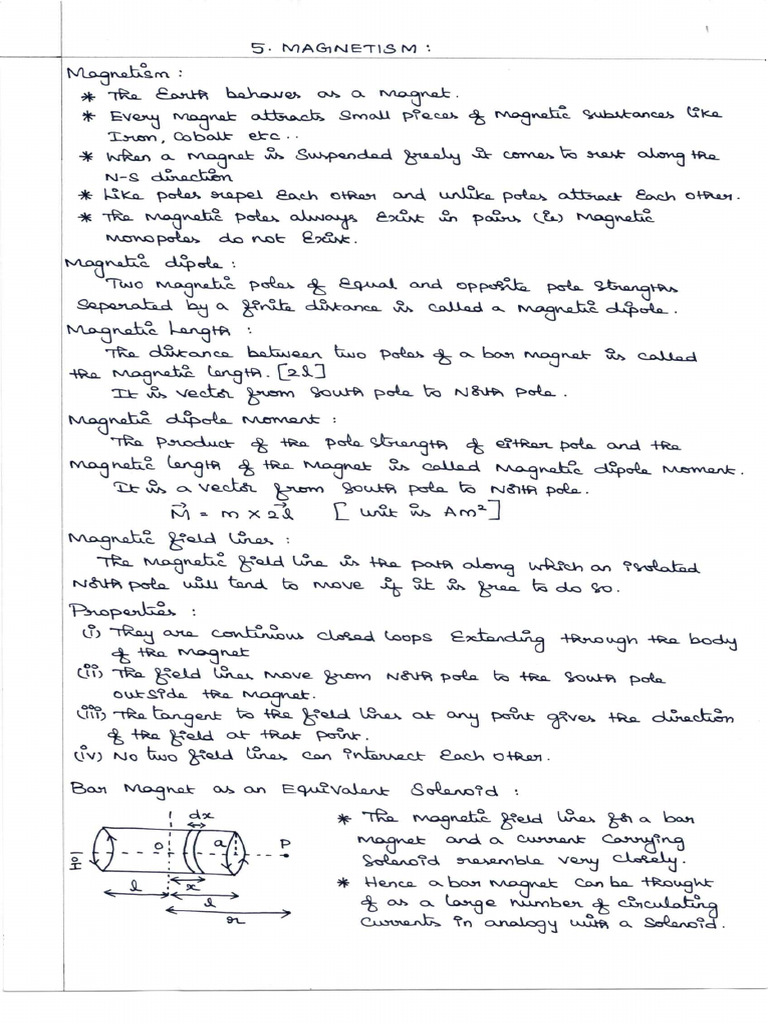 5. MAGNETISM :
Magnetism :
* The Earth behaves as a Magnet.
* Every Magnet attracts Small pieces of Magnetic Substances like
Iron, Cobalt etc..
* When a Magnet is Suspended freely it comes to rest along the
N-S direction
* Like poles repel Each other and unlike poles attract Each other.
* The Magnetic poles always Exist in pairs (ie) Magnetic
Monopoles do not Exist.
Magnetic dipole :
Two Magnetic poles of Equal and opposite pole Strengths
Seperated by a finite distance is called a Magnetic dipole.
Magnetic Length :
The distance between two poles of a bar Magnet is called
the Magnetic length. [2l]
It is vector from South pole to North pole.
Magnetic dipole Moment :
The product of the pole strength of either pole and the
Magnetic length of the Magnet is called Magnetic dipole Moment.
It is a vector from South pole to North pole.
M⃗ = m × 2l⃗ [ unit is Am²]
Magnetic field lines :
The Magnetic field line is the path along which an isolated
North pole will tend to move if it is free to do so.
Properties :
(i) They are continious closed loops Extending through the body
of the Magnet
(ii) The field lines move from North pole to the South pole
outside the Magnet.
(iii) The tangent to the field lines at any point gives the direction
of the field at that point.
(iv) No two field lines can intersect Each other.
Bar Magnet as an Equivalent Solenoid :
dx
O a P
l x
l
r
* The Magnetic field lines for a bar
Magnet and a current carrying
Solenoid resemble very closely.
* Hence a bar Magnet can be thought
of as a large number of circulating
Currents in analogy with a Solenoid.